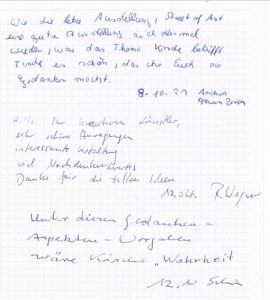 Wie die letzte Ausstellung, Street of Art
eine gute Ausstellung auch diesmal
wieder, was das Thema Kirche betrifft
Finde es schön, das ihr Euch so
Gedanken macht.
8.10.21 Andrea
Hallo Ihr kreativen Künstler,
sehr schöne Anregungen
interessante Gestaltung
und Nachdenkenswertes
Danke für die tollen Ideen
12. Okt. R.
Unter diesen Gedanken -
Aspekten - Vorgaben
wäre Kirche "Wahrheit
12.10